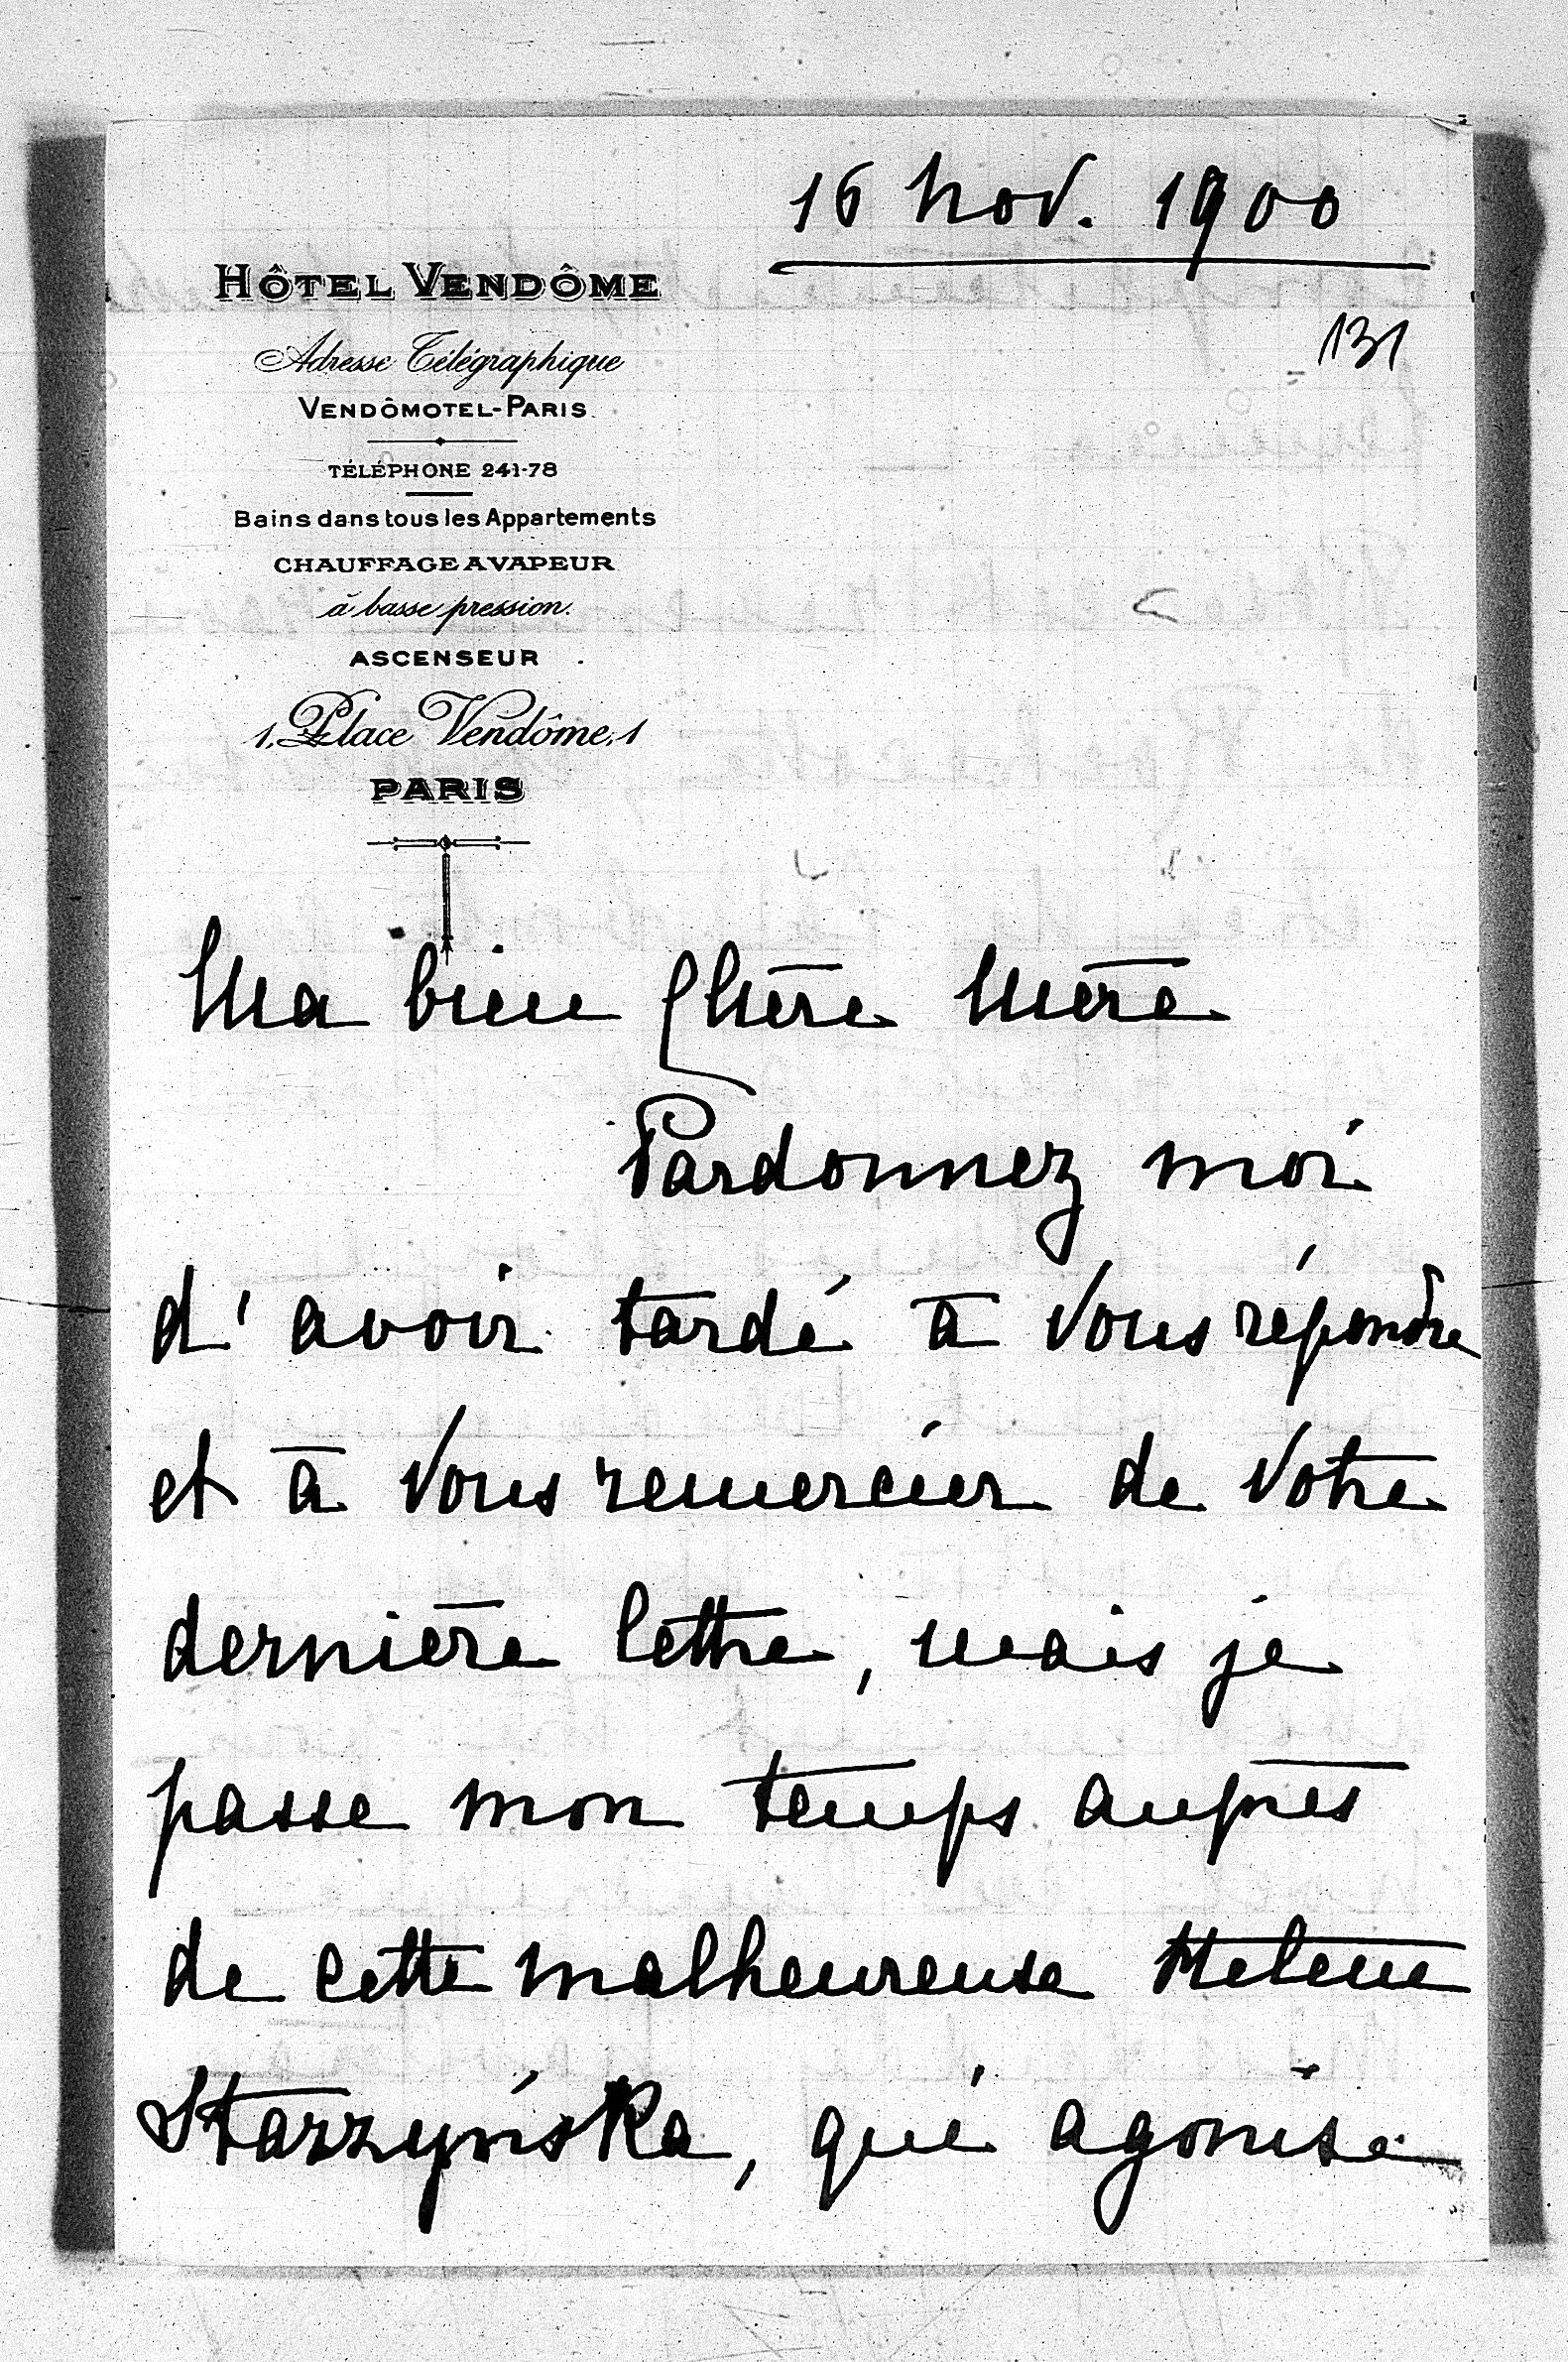 16 Nov. 1900
131
HÔTEL VENDÔME
Adresse Télégraphique
VENDÔMOTEL-PARIS.
TÉLÉPHONE 241-78
Bains dans tous les Appartements
CHAUFFAGE A VAPEUR
à basse pression.
ASCENSEUR
1, Place Vendôme, 1
PARIS
Ma bien Chère Mère
Pardonnez moi
d'avoir tardé à Vous répondre
et à Vous remercier de Votre
dernière lettre, mais je
passe mon temps auprès
de cette malheureuse Helene
Starzyńska, qui agonise